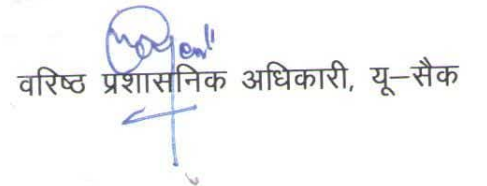 वरिष्ठ प्रशासनिक अधिकारी, यू–सैक